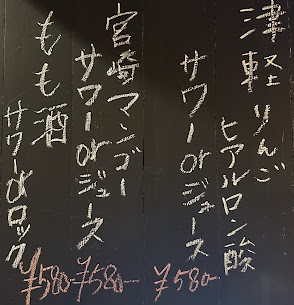 津軽りんご
ヒアルロン酸
サワーorジュース
¥580-
宮崎マンゴー
サワーorジュース
¥580-
もも酒
サワーorロック
¥580-